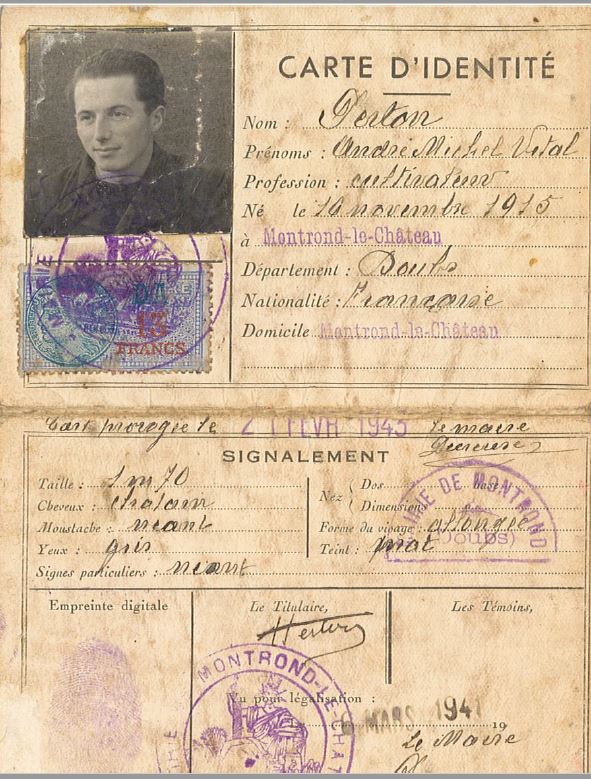 CARTE D'IDENTITÉ
Nom : Perton
Prénoms : André Michel Vital
Profession : cultivateur
Né le 16 novembre 1915
à Montrond-le-Château
Département : Doubs
Nationalité : Française
Domicile Montrond-le-Château
MAIRIE
13
FRANCS
Cart prorogée le 21 FEVR 1943 le maire
SIGNALEMENT
Taille : 1m70
Cheveux : chatain
Moustache : néant
Yeux : gris
Signes particuliers : néant
Nez Dos
Dimensions
Forme du visage : allongée
Teint : mat
MAIRIE DE MONTROND
(Doubs)
Empreinte digitale
Le Titulaire,
Les Témoins,
Perton
MONTROND-LE-CHAT
Vu pour légalisation :
MARS 1941 19
Le Maire